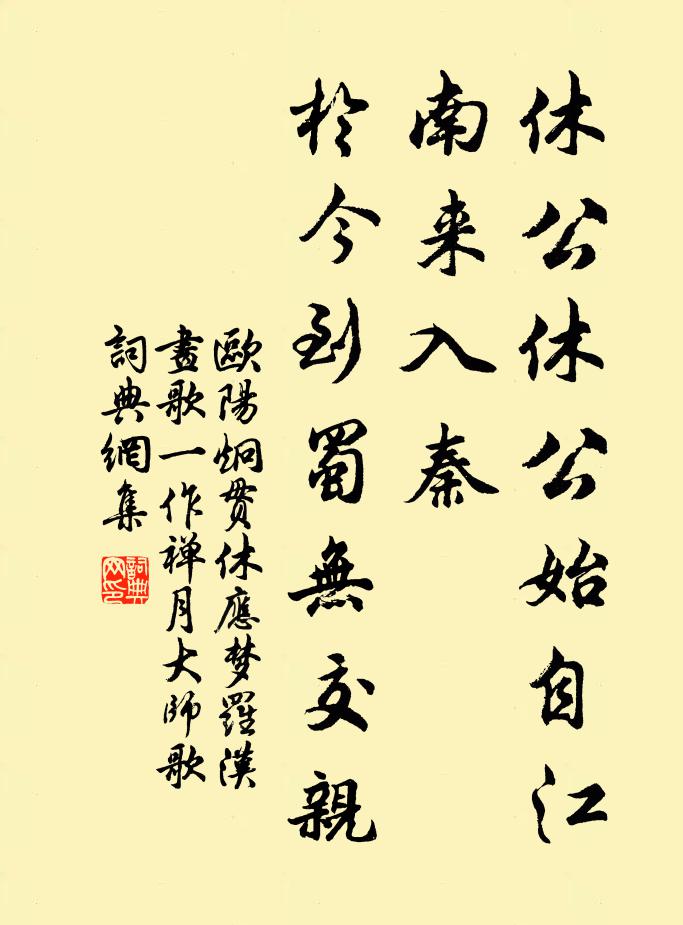 休公休公始自江
南来入秦
於今到蜀無交親
歐陽炯貫休應梦羅漢
畫歌一作禅月大師歌
詞典網集
詞典
网印